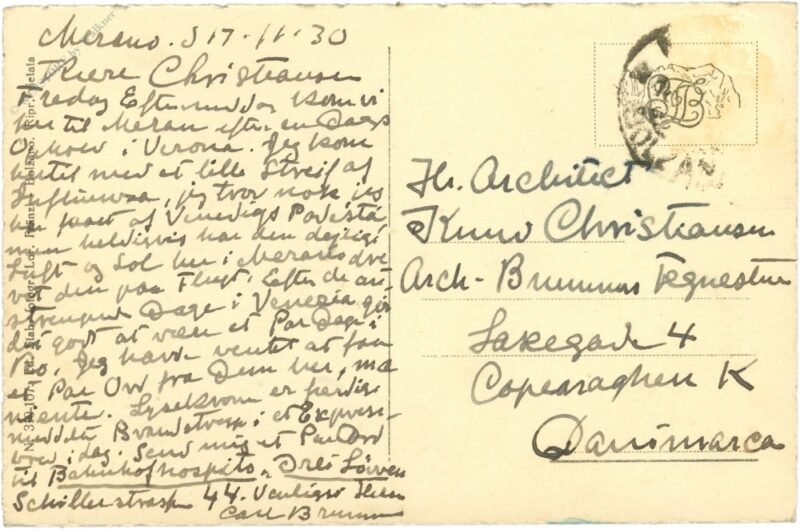 Merano. D 17-11-30
Kære Christiansen
Fredag Eftermiddag kom vi
her til Meran efter en Dags
Ophold i Verona. Jeg kom
hertil med et lille Streif af
Influenza, jeg tror nok jeg
har faaet af Venedigs Podestà
men heldigvis har den dejlige
Luft og Sol her i Merano dre-
vet den paa Flugt. Efter de an-
strengende Dage i Venezia gør
det godt at være et Par Dage i
Ro. Jeg havde ventet at faa
et Par Ord fra Dem her, maa
mente. Lysekronen er færdig
meddelte Brandstrup i et Expres-
brev i dag. Send mig et Par Ord
til Bahnhofhospitz "Drei Löwen
Schillerstrasse 44. Venligst Hilsen
Carl Brummer
Hr. Architect
Knud Christiansen
Arch- Brummers Tegnestue
Laxegade 4
Copenaghen K
Danimarca